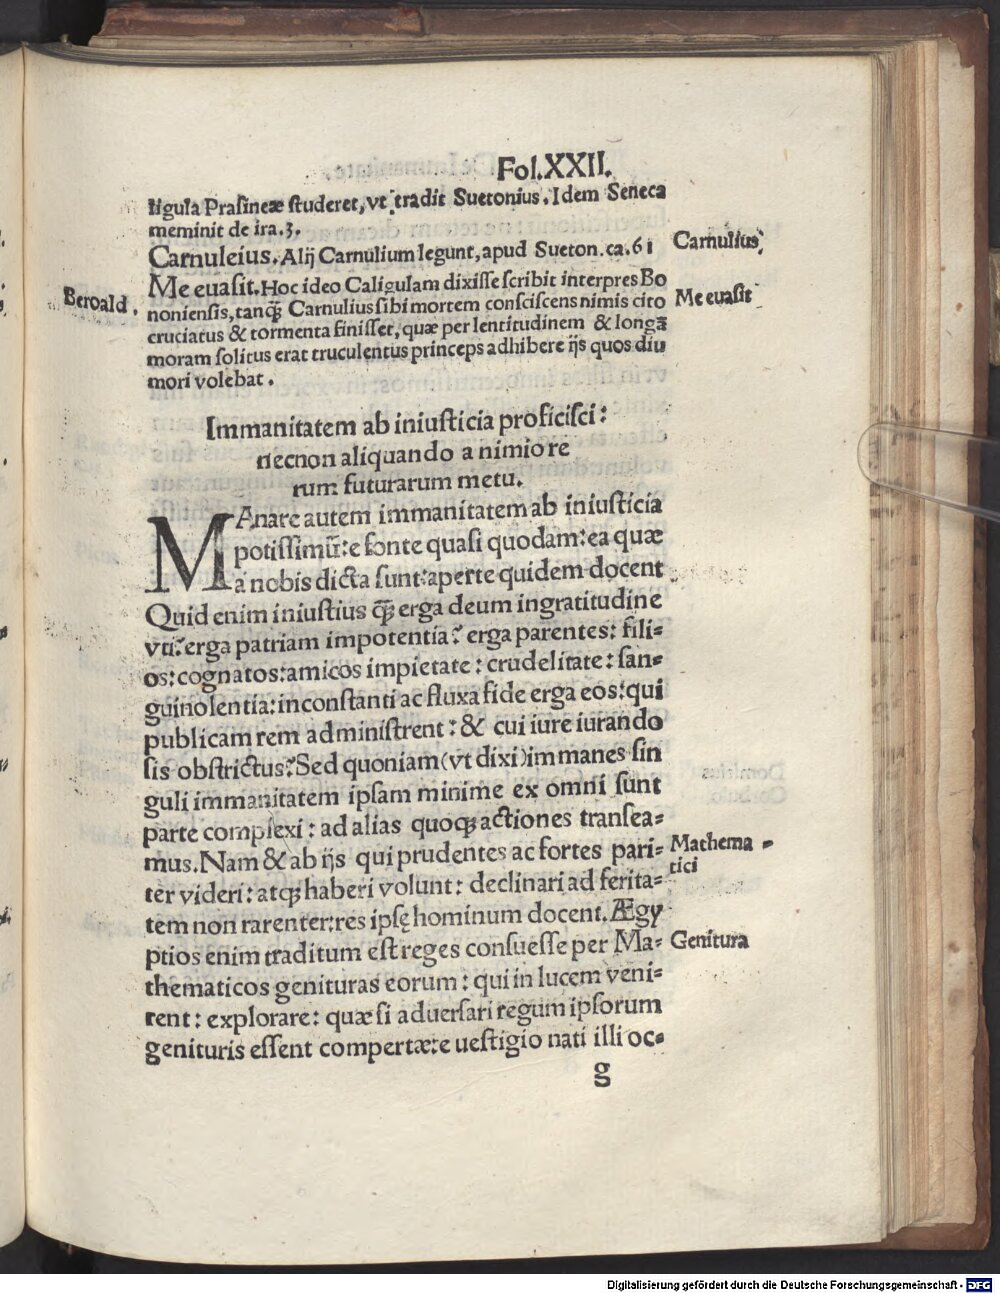 Fol.XXII.
ligula Prasineæ studeret, vt tradit Suetonius. Idem Seneca
meminit de ira.3.
Carnuleius. Alij Carnulium legunt, apud Sueton. ca. 61
Carnulius
Me euasit. Hoc ideo Caligulam dixisse scribit interpres Bo
Me euasit
Beroald.
noniensis, tanq̃ Carnulius sibi mortem consciscens nimis cito
cruciatus & tormenta finisset, quæ per lentitudinem & longã
moram solitus erat truculentus princeps adhibere ijs quos diu
mori volebat.
Immanitatem ab iniusticia proficisci:
necnon aliquando a nimio re
rum futurarum metu.
MAnare autem immanitatem ab iniusticia
potissimũ: e fonte quasi quodam: ea quæ
a nobis dicta sunt: aperte quidem docent
Quid enim iniustius q̃ erga deum ingratitudine
vti? erga patriam impotentia? erga parentes: fili=
os: cognatos: amicos impietate: crudelitate: san=
guinolentia: inconstanti ac fluxa fide erga eos: qui
publicam rem administrent: & cui iure iurando
sis obstrictus? Sed quoniam (vt dixi) immanes sin
guli immanitatem ipsam minime ex omni sunt
parte complexi: ad alias quoqꝫ actiones transea=
mus. Nam & ab ijs qui prudentes ac fortes pari=
Mathema=
tici
ter videri: atqꝫ haberi volunt: declinari ad ferita=
tem non rarenter: res ipsę hominum docent. Ægy
ptios enim traditum est reges consuesse per Ma=
Genitura
thematicos genituras eorum: qui in lucem veni=
rent: explorare: quæ si aduersari regum ipsorum
genituris essent compertæ: e uestigio nati illi oc=
g
Digitalisierung gefördert durch die Deutsche Forschungsgemeinschaft - DFG